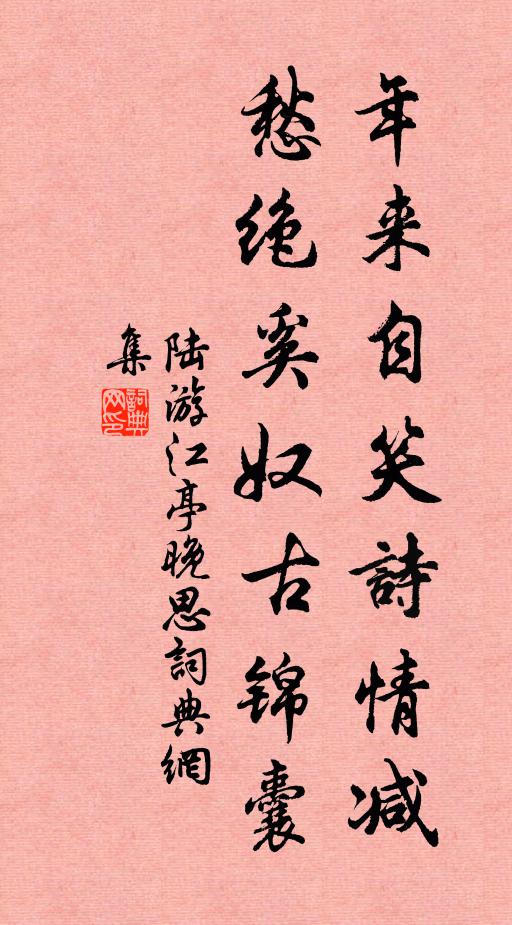 年来自笑詩情减
愁绝奚奴古锦囊
陆游江亭晚思詞典網
集
詞典网印